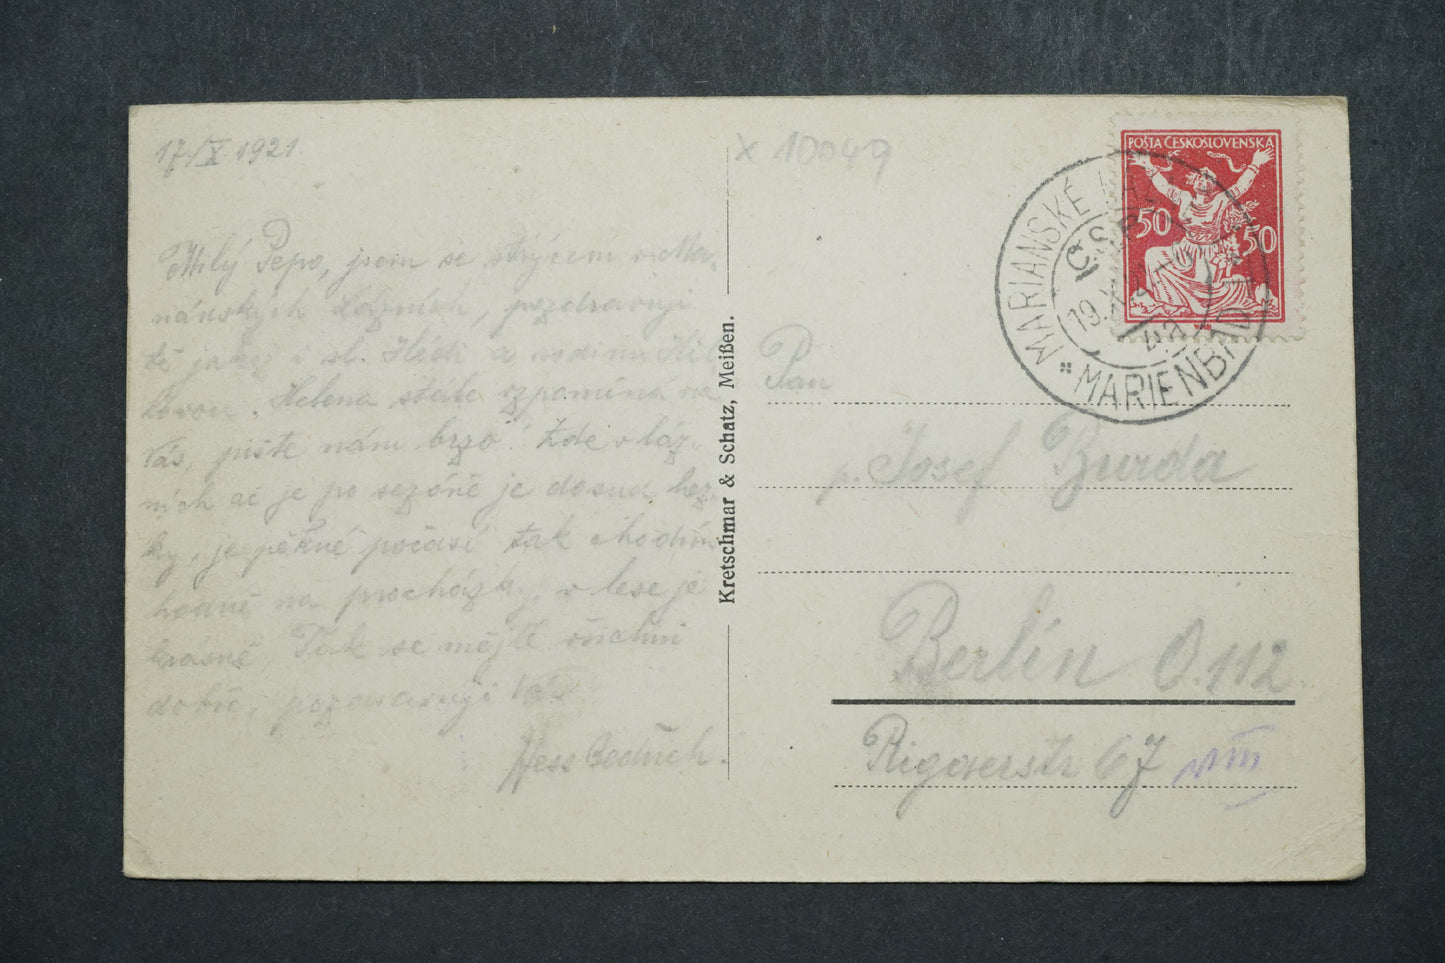 17./X 1921.
Milý Pepo, jsem se strýcem v Ma-
riánských Lázních, pozdravuji
tě a sl. Hedi a rodinu
Helena stále vzpomíná na
Vás, pište nám brzo! Zde v láz-
ních ač je po sezóně je dosud hez-
ky, je pěkné počasí tak chodím
hodně na procházky, v lese je
krásně, Tak se mějte všichni
dobře, pozdravuji Vás
Hess Bedřich.
Kretschmar & Schatz, Meißen.
x 10049
POŠTA ČESKOSLOVENSKÁ
50 50
MARIÁNSKÉ LÁZNĚ
ČSR
19.X
MARIENBAD
Pan
p. Josef Burda
Berlín O.112
Rigaerstr 67 VIII